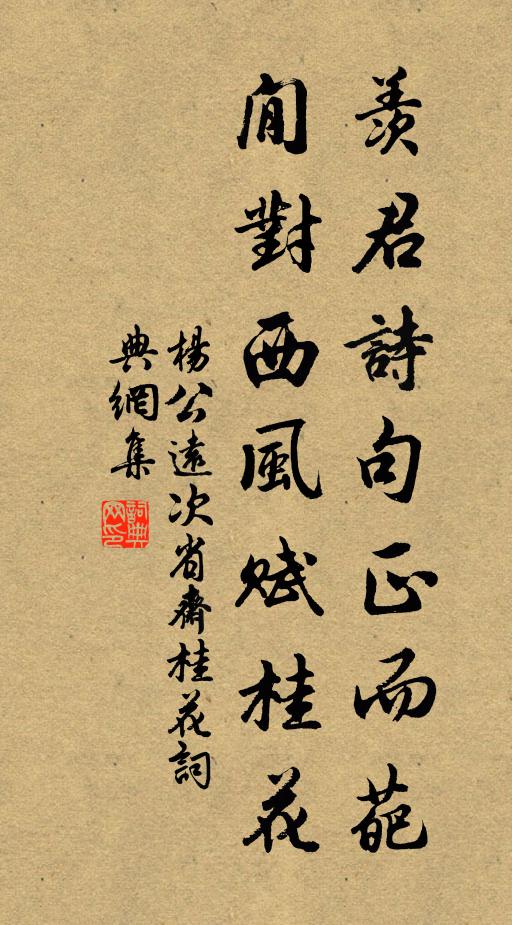 羨君詩句正而葩
閒對西風賦桂花
楊公遠次省齋桂花詞
典網集
詞典網印